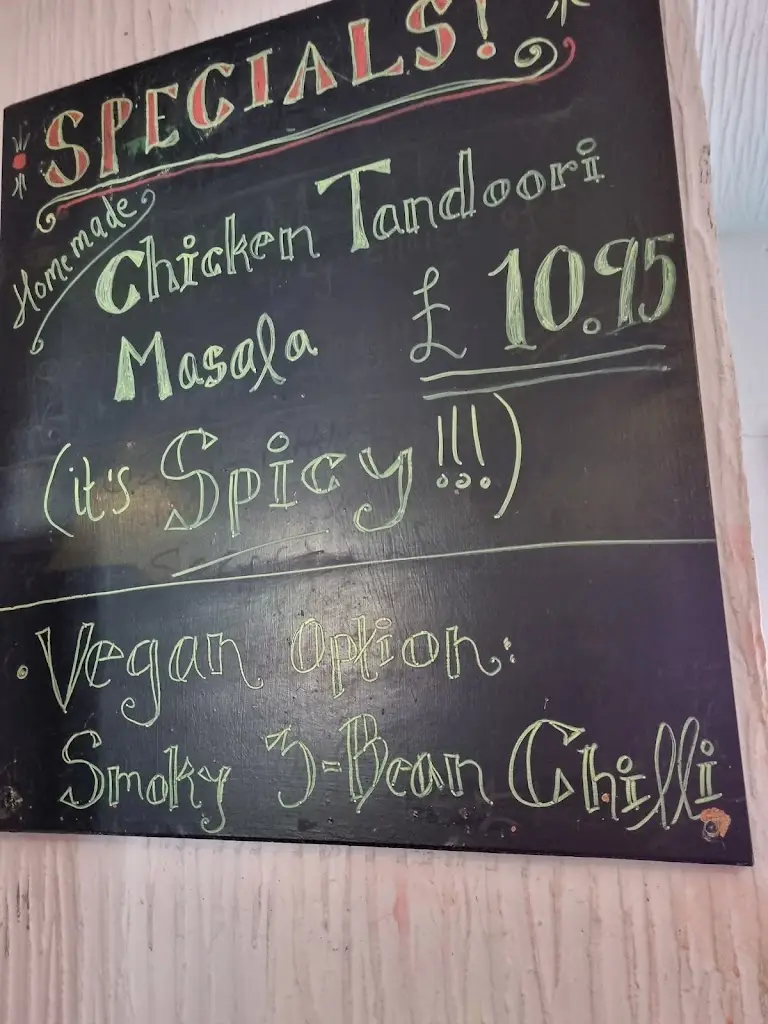 SPECIALS!
Homemade
Chicken Tandoori
Masala £10.95
(it's Spicy!!!)
• Vegan Option:
Smoky 3-Bean Chilli